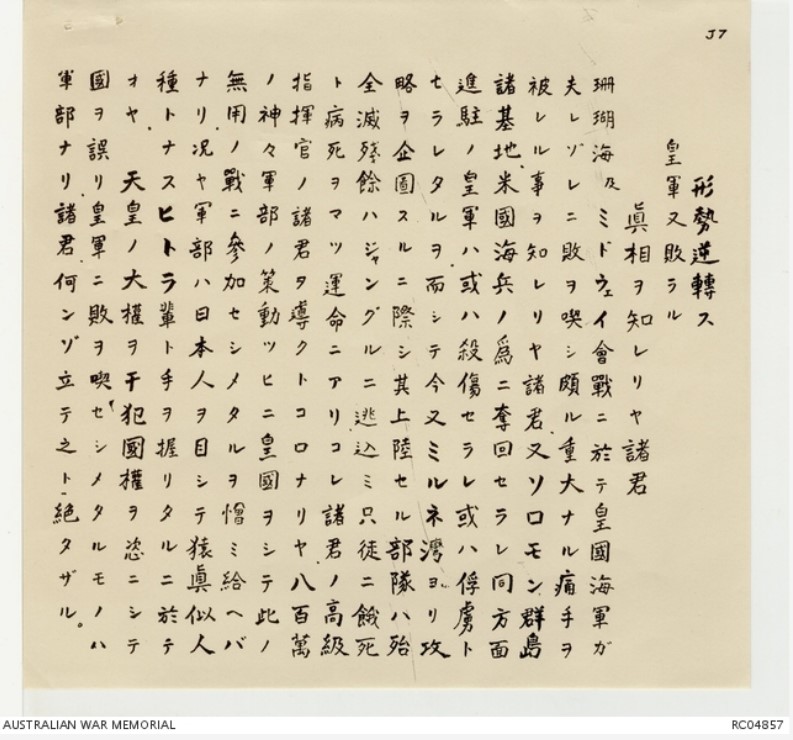 J7
形勢逆轉ス
皇軍又敗ラル
眞相ヲ知レリヤ諸君
珊瑚海及ミドウェイ會戰ニ於テ皇國海軍ガ
夫レゾレニ敗ヲ喫シ頗ル重大ナル痛手ヲ
被レル事ヲ知レリヤ諸君.又ソロモン群島
諸基地.米國海兵ノ爲ニ奪回セラレ同方面
進駐ノ皇軍ハ或ハ殺傷セラレ或ハ俘虜ト
セラレタルヲ.而シテ今又ミルネ灣ヨリ攻
略ヲ企圖スルニ際シ其上陸セル部隊ハ殆
全滅殘餘ハジャングルニ逃込ミ只徒ニ餓死
ト病死ヲマツ運命ニアリコレ諸君ノ高級
指揮官ノ諸君ヲ導クトコロナリヤ八百萬
ノ神々軍部ノ策動ツヒニ皇國ヲシテ此ノ
無用ノ戰ニ參加セシメタルヲ憎ミ給ヘバ
ナリ.况ヤ軍部ハ日本人ヲ目シテ猿眞似人
種トナスヒトラ輩ト手ヲ握リタルニ於テ
オヤ.天皇ノ大權ヲ干犯國權ヲ恣ニシテ
國ヲ誤リ皇軍ニ敗ヲ喫セシメタルモノハ
軍部ナリ諸君.何ンゾ立テ之ト絕タザル。
AUSTRALIAN WAR MEMORIAL
RC04857